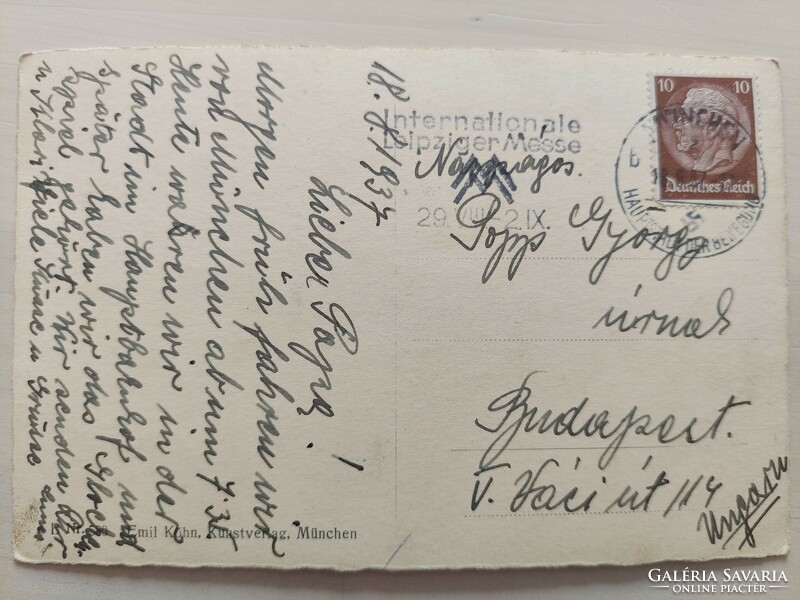 18. 8. 1937
Lieber Papa!
Morgen früh fahren wir
von München ab um 7.35
Heute waren wir in der
Stadt im Hauptbahnhof und
später haben wir das Glocken
spiel gehört. Wir senden Dir
viele Küsse u Grüsse
Internationale
Leipziger Messe
29. VIII-2.IX.
MÜNCHEN
HAUPTSTADT DER BEWEGUNG
10 10
Deutsches Reich
Nagyságos.
Popp György
úrnak
Budapest.
V. Váci út 114
Ungarn
Emil Köhn, Kunstverlag, München
GALÉRIA SAVARIA
ONLINE PIACTÉR